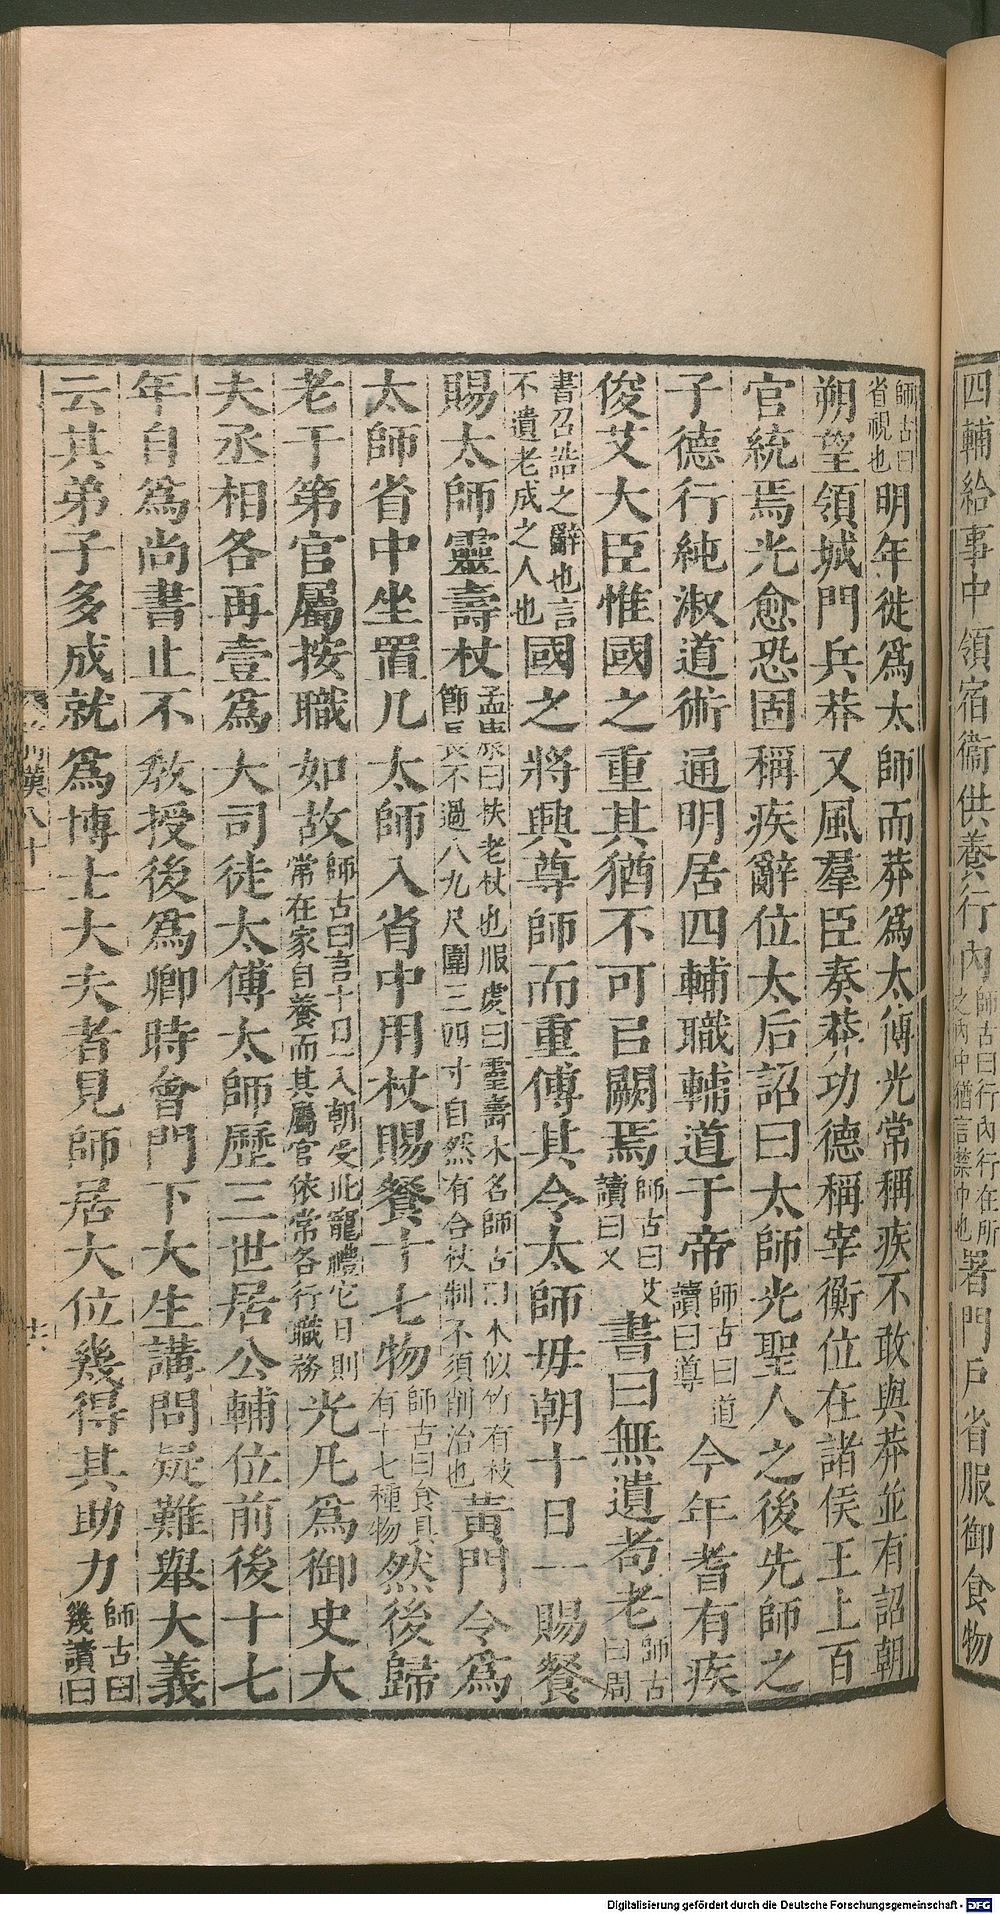 四輔給事中領宿衞供養行內師古曰行內行在所之內中猶言禁中也署門戶省服御食物
師古曰省視也明年徙爲太師而莽爲太傅光常稱疾不敢與莽並有詔朝
朔望領城門兵莽又風羣臣奏莽功德稱宰衡位在諸侯王上百
官統焉光愈恐固稱疾辭位太后詔曰太師光聖人之後先師之
子德行純淑道術通明居四輔職輔道于帝師古曰道讀曰導今年耆有疾
俊艾大臣惟國之重其猶不可㠯闕焉師古曰艾讀曰乂書曰無遺耇老師古曰周
書召誥之辭也言不遺老成之人也國之將興尊師而重傅其令太師毋朝十日一賜餐
賜太師靈壽杖孟康曰扶老杖也服虔曰靈壽木名師古曰木似竹有枝節長不過八九尺圍三四寸自然有合杖制不須削治也黃門令爲
太師省中坐置几太師入省中用杖賜餐十七物師古曰食具有十七種物然後歸
老于第官屬按職如故師古曰言十日一入朝受此寵禮它日則常在家自養而其屬官依常各行職務光凡爲御史大
夫丞相各再壹爲大司徒太傅太師歷三世居公輔位前後十七
年自爲尚書止不敎授後爲卿時會門下大生講問疑難舉大義
云其弟子多成就爲博士大夫者見師居大位幾得其助力師古曰幾讀曰
前漢八十一
十六
Digitalisierung gefördert durch die Deutsche Forschungsgemeinschaft - DFG